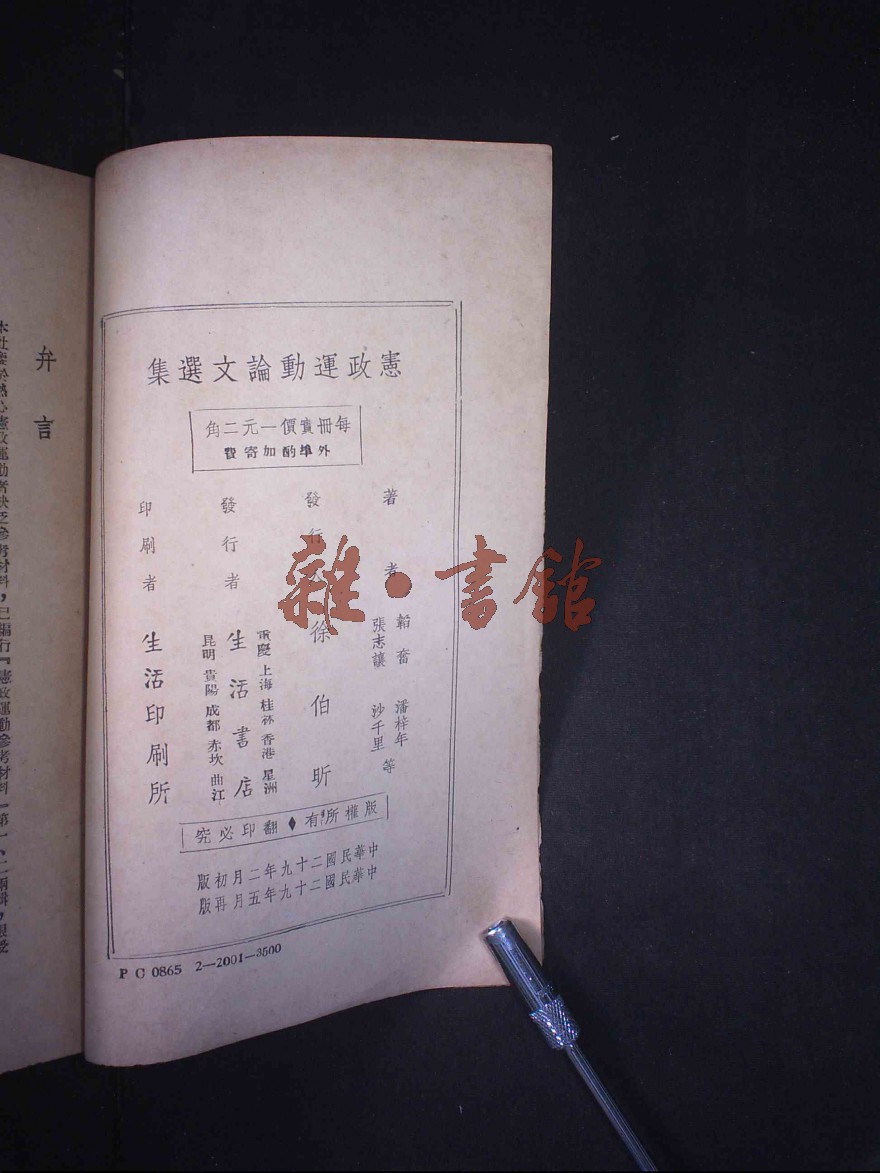 憲政運動論文選集
每冊實價一元二角
外埠酌加寄費
著者
韜奮 潘梓年
張志讓 沙千里 等
發行人 徐伯昕
發行者 生活書店
重慶 上海 桂林 香港 星洲
昆明 貴陽 成都 赤坎 曲江
印刷者 生活印刷所
版權所有♦翻印必究
中華民國二十九年二月初版
中華民國二十九年五月再版
P C 0865 2—2001—3500
弁言
心憲政運動者缺乏參考材料，已編行『憲政運動參考材料』第一、二兩輯，
雜·書館